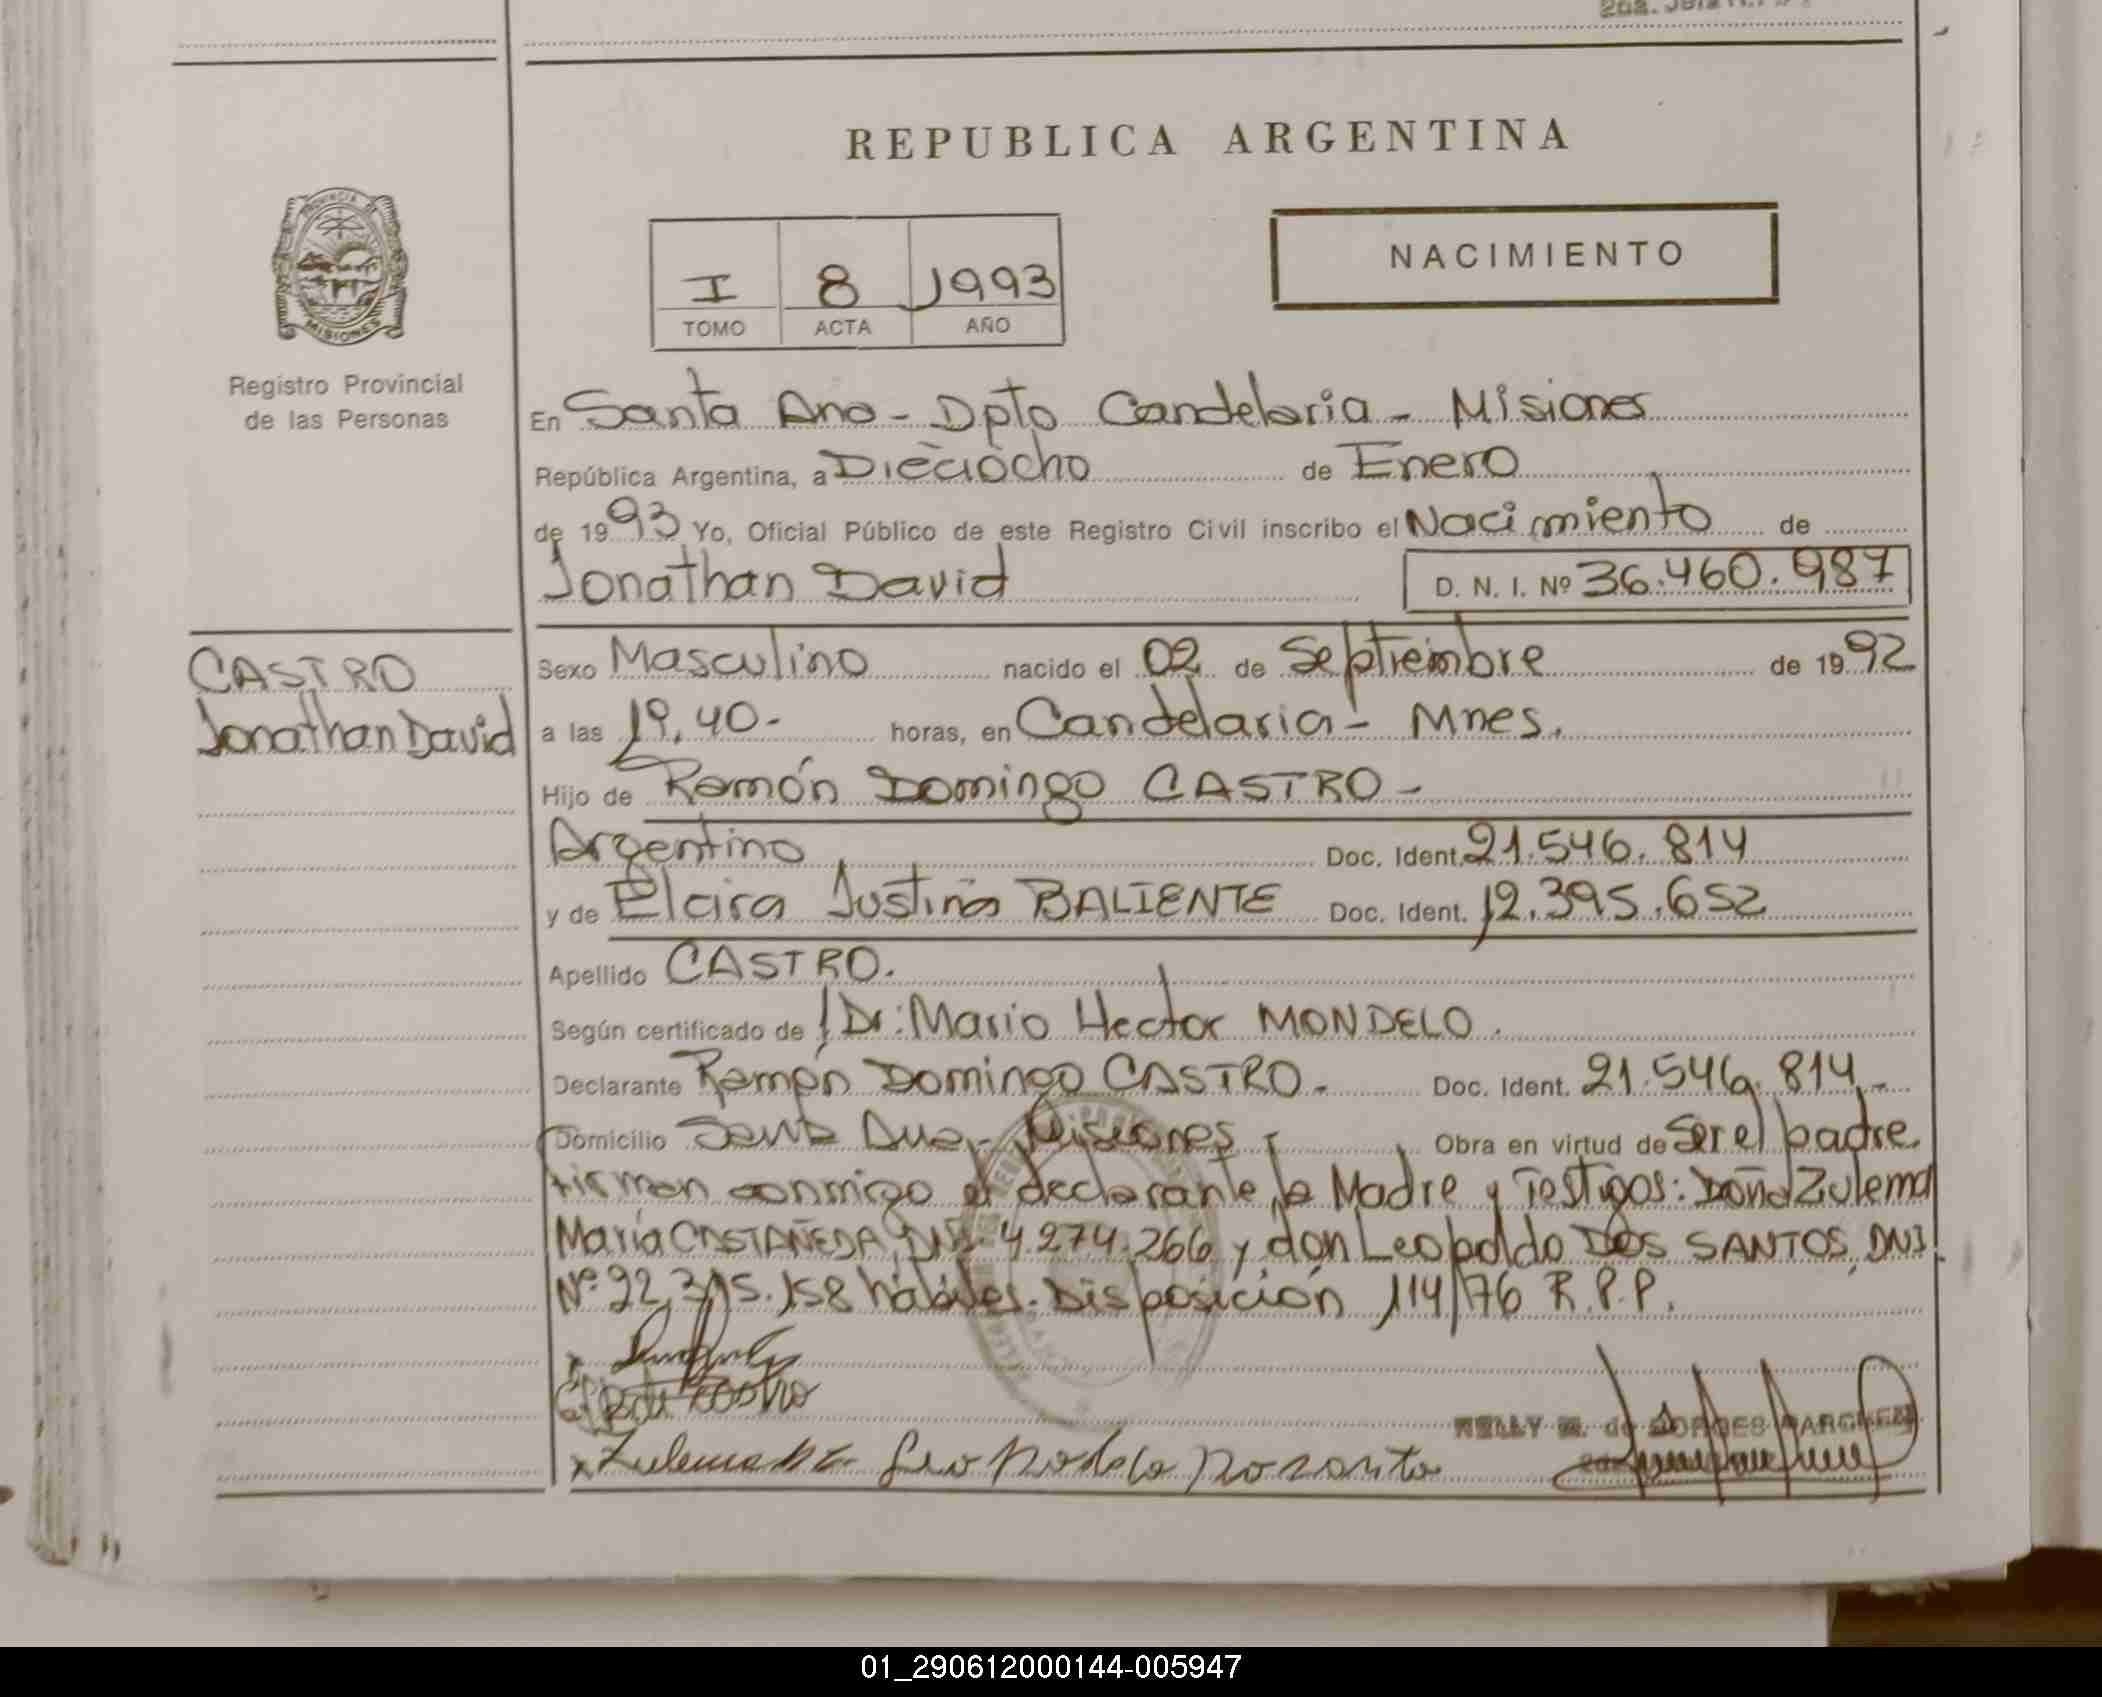 REPUBLICA ARGENTINA
NACIMIENTO
I 8 1993
TOMO ACTA AÑO
PROVINCIA DE
MISIONES
Registro Provincial
de las Personas
En Santa Ana - Dpto Candelaria - Misiones
República Argentina, a Dieciocho de Enero
de 1993 Yo, Oficial Público de este Registro Civil inscribo el Nacimiento de
Jonathan David
D. N. I. Nº 36.460.987
CASTRO
Jonathan David
Sexo Masculino nacido el 02 de Septiembre de 1992
a las 19,40- horas, en Candelaria - Mnes.
Hijo de Ramón Domingo CASTRO -
Argentino Doc. Ident. 21.546.814
y de Elcira Justina BALIENTE Doc. Ident. 12.395.652
Apellido CASTRO.
Según certificado de Dr: Mario Hector MONDELO.
Declarante Ramón Domingo CASTRO - Doc. Ident. 21.546.814 -
Domicilio Santa Ana - Misiones - Obra en virtud de Ser el padre.
firman conmigo el declarante, la Madre y Testigos: Doña Zulema
María CASTAÑEDA, DNI. 4.274.266 y don Leopoldo DOS SANTOS, DNI
Nº 22.315.158 hábiles. Disposición 114/76 R.P.P.
NELLY de BORGES
01_290612000144-005947